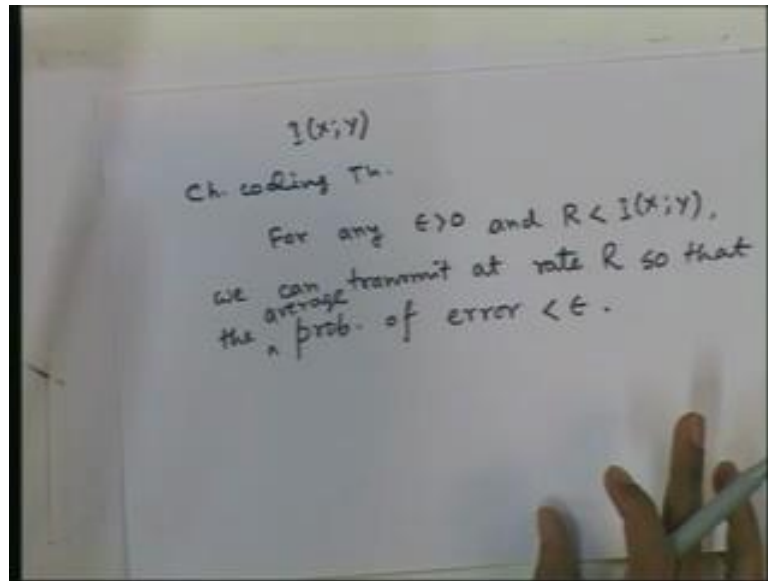 I(x;y)
Ch. coding Th.
For any ϵ>0 and R < I(x;y),
we can transmit at rate R so that
the average prob. of error < ϵ.